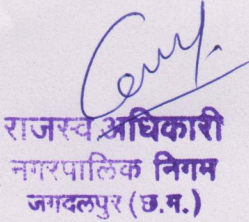 राजस्व अधिकारी
नगरपालिक निगम
जगदलपुर (छ.ग.)